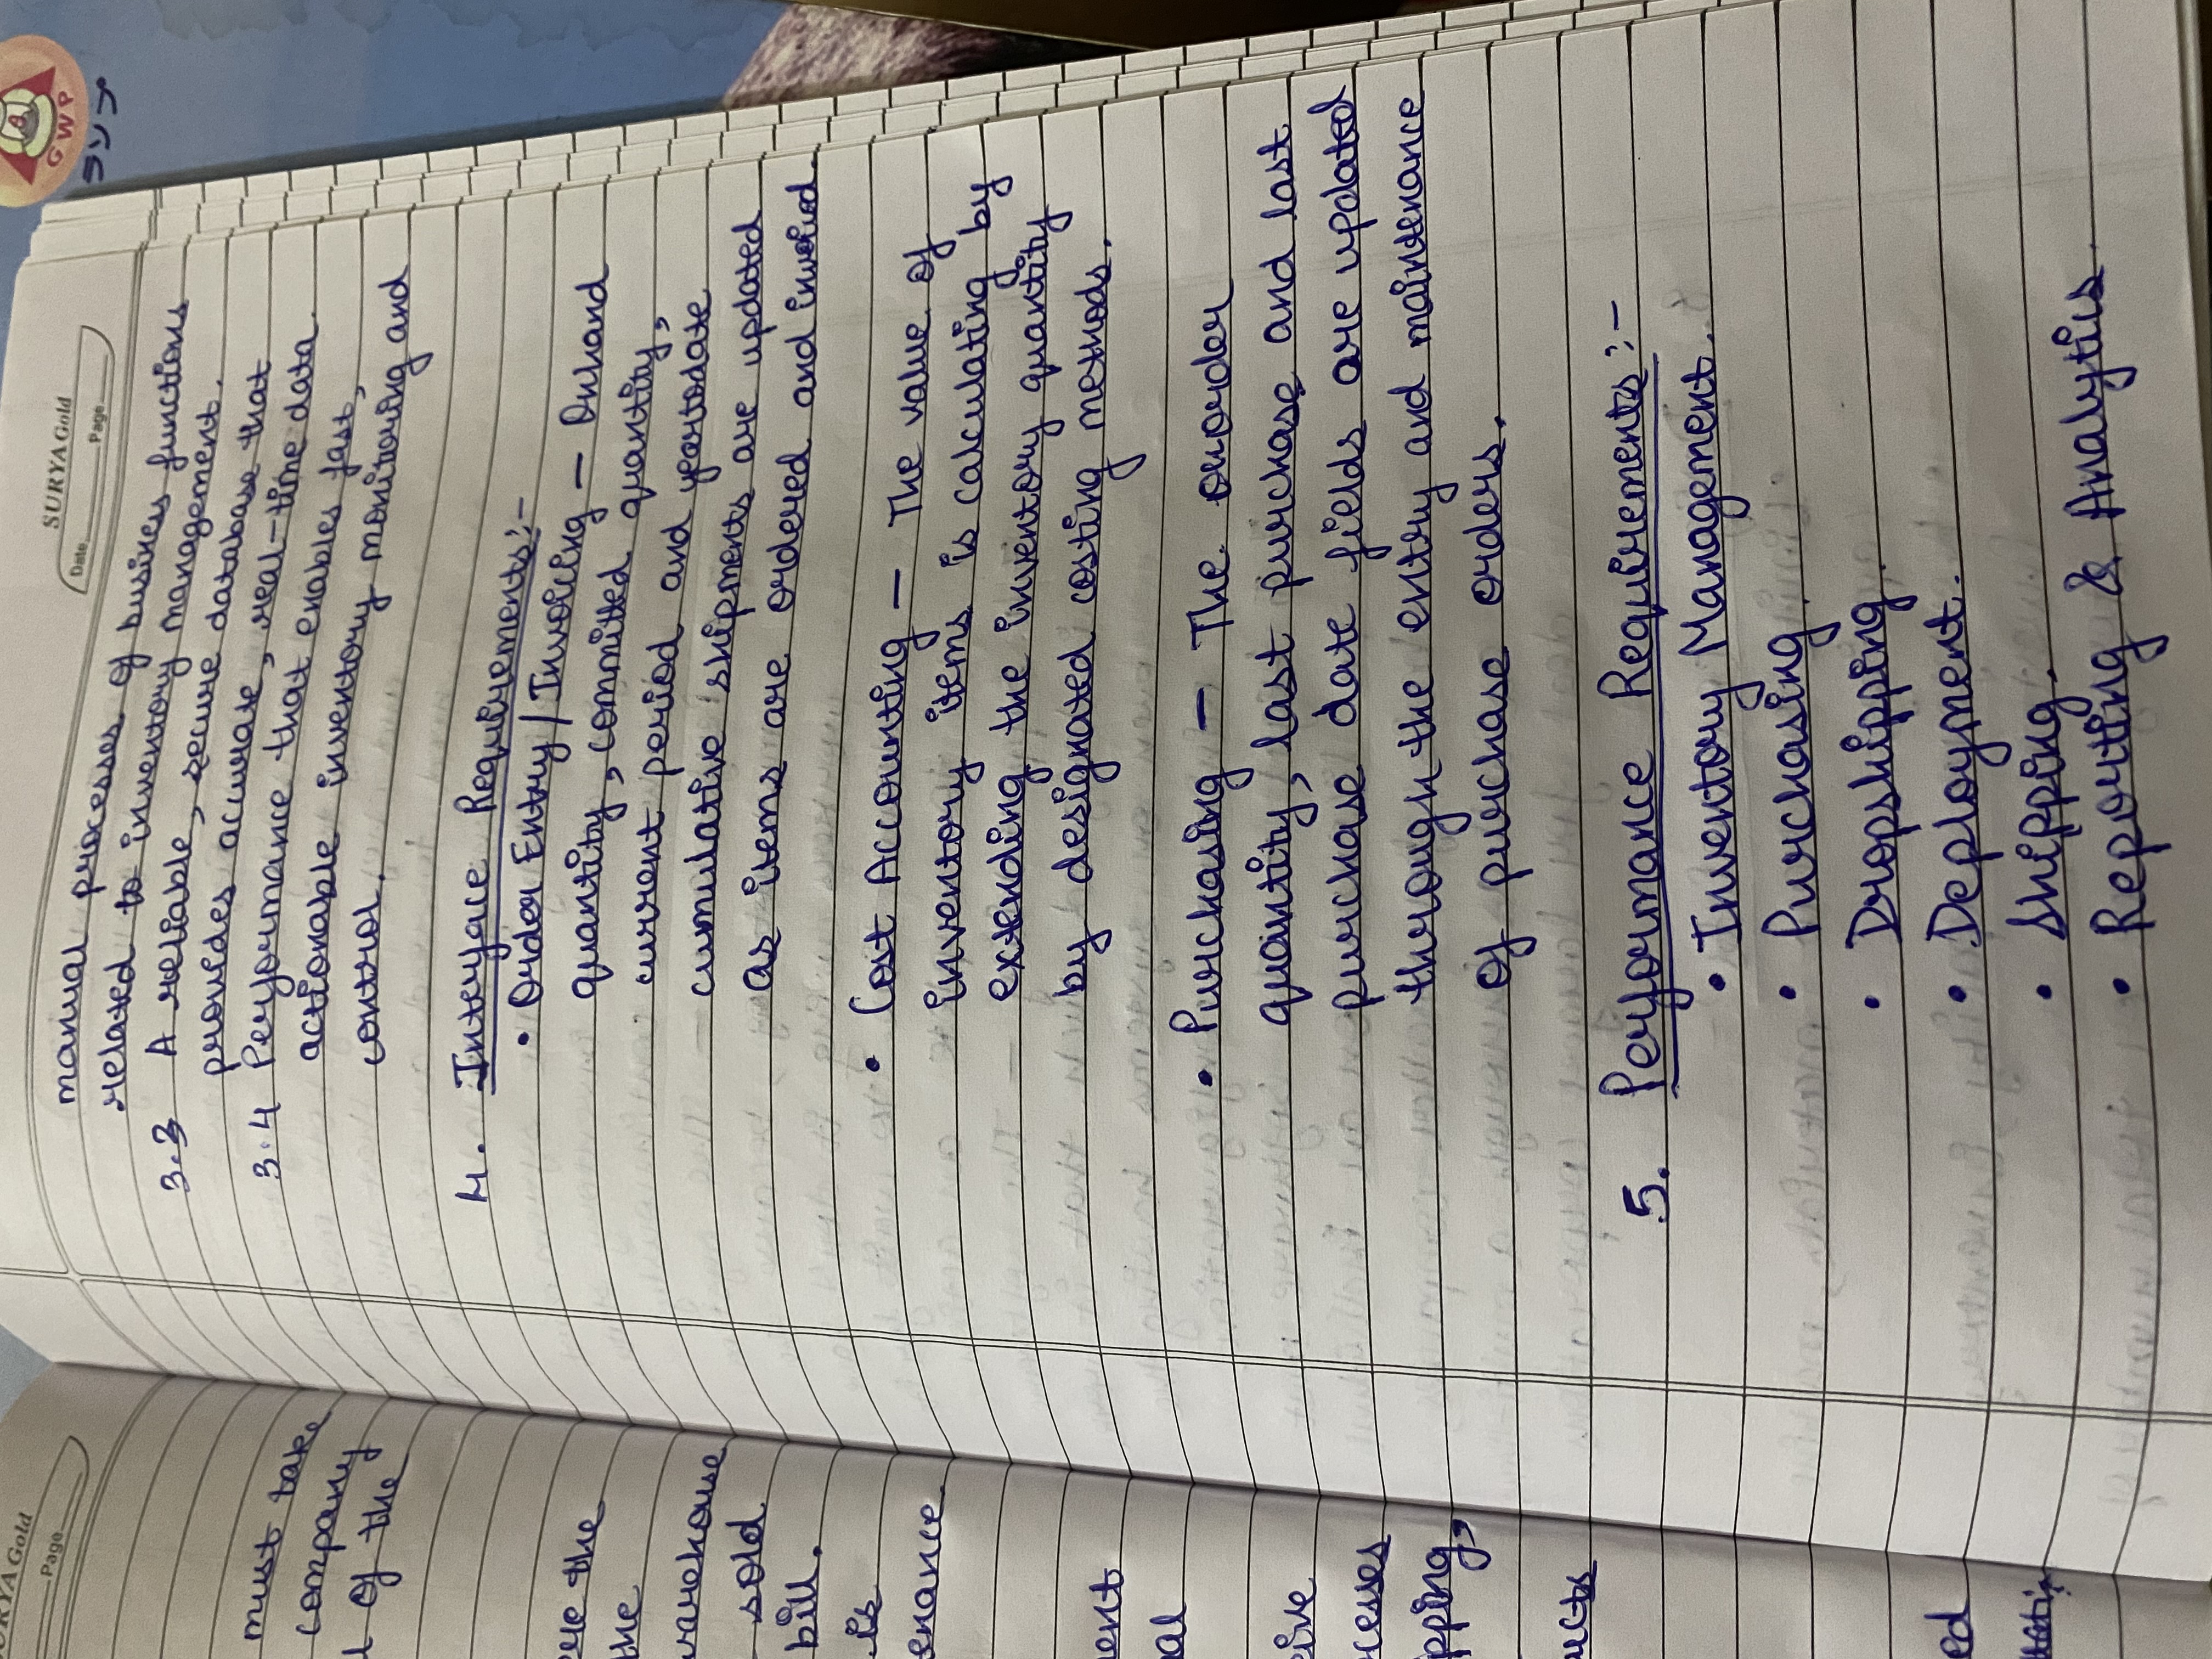 SURYA Gold
Page
must take
company
of the
the
the
warehouse
sold
bill.
is
SURYA Gold
Date Page
manual processes of business functions
related to inventory management.
3.3 A reliable, secure database that
provides accurate, real-time data.
3.4 Performance that enables fast,
actionable inventory monitoring and
control.
4. Interface Requirements:-
• Order Entry / Invoicing — Onhand
quantity, committed quantity,
current period and yeartodate
cumulative shipments are updated
as items are ordered and invoiced.
• Cost Accounting — The value of
inventory items is calculating by
extending the inventory quantity
by designated costing methods.
• Purchasing — The onorder
quantity, last purchase and last
purchase date fields are updated
through the entry and maintenance
of purchase orders.
5. Performance Requirements:-
• Inventory Management.
• Purchasing.
• Dropshipping.
• Deployment.
• Shipping.
• Reporting & Analytics.
GWP
ランプ